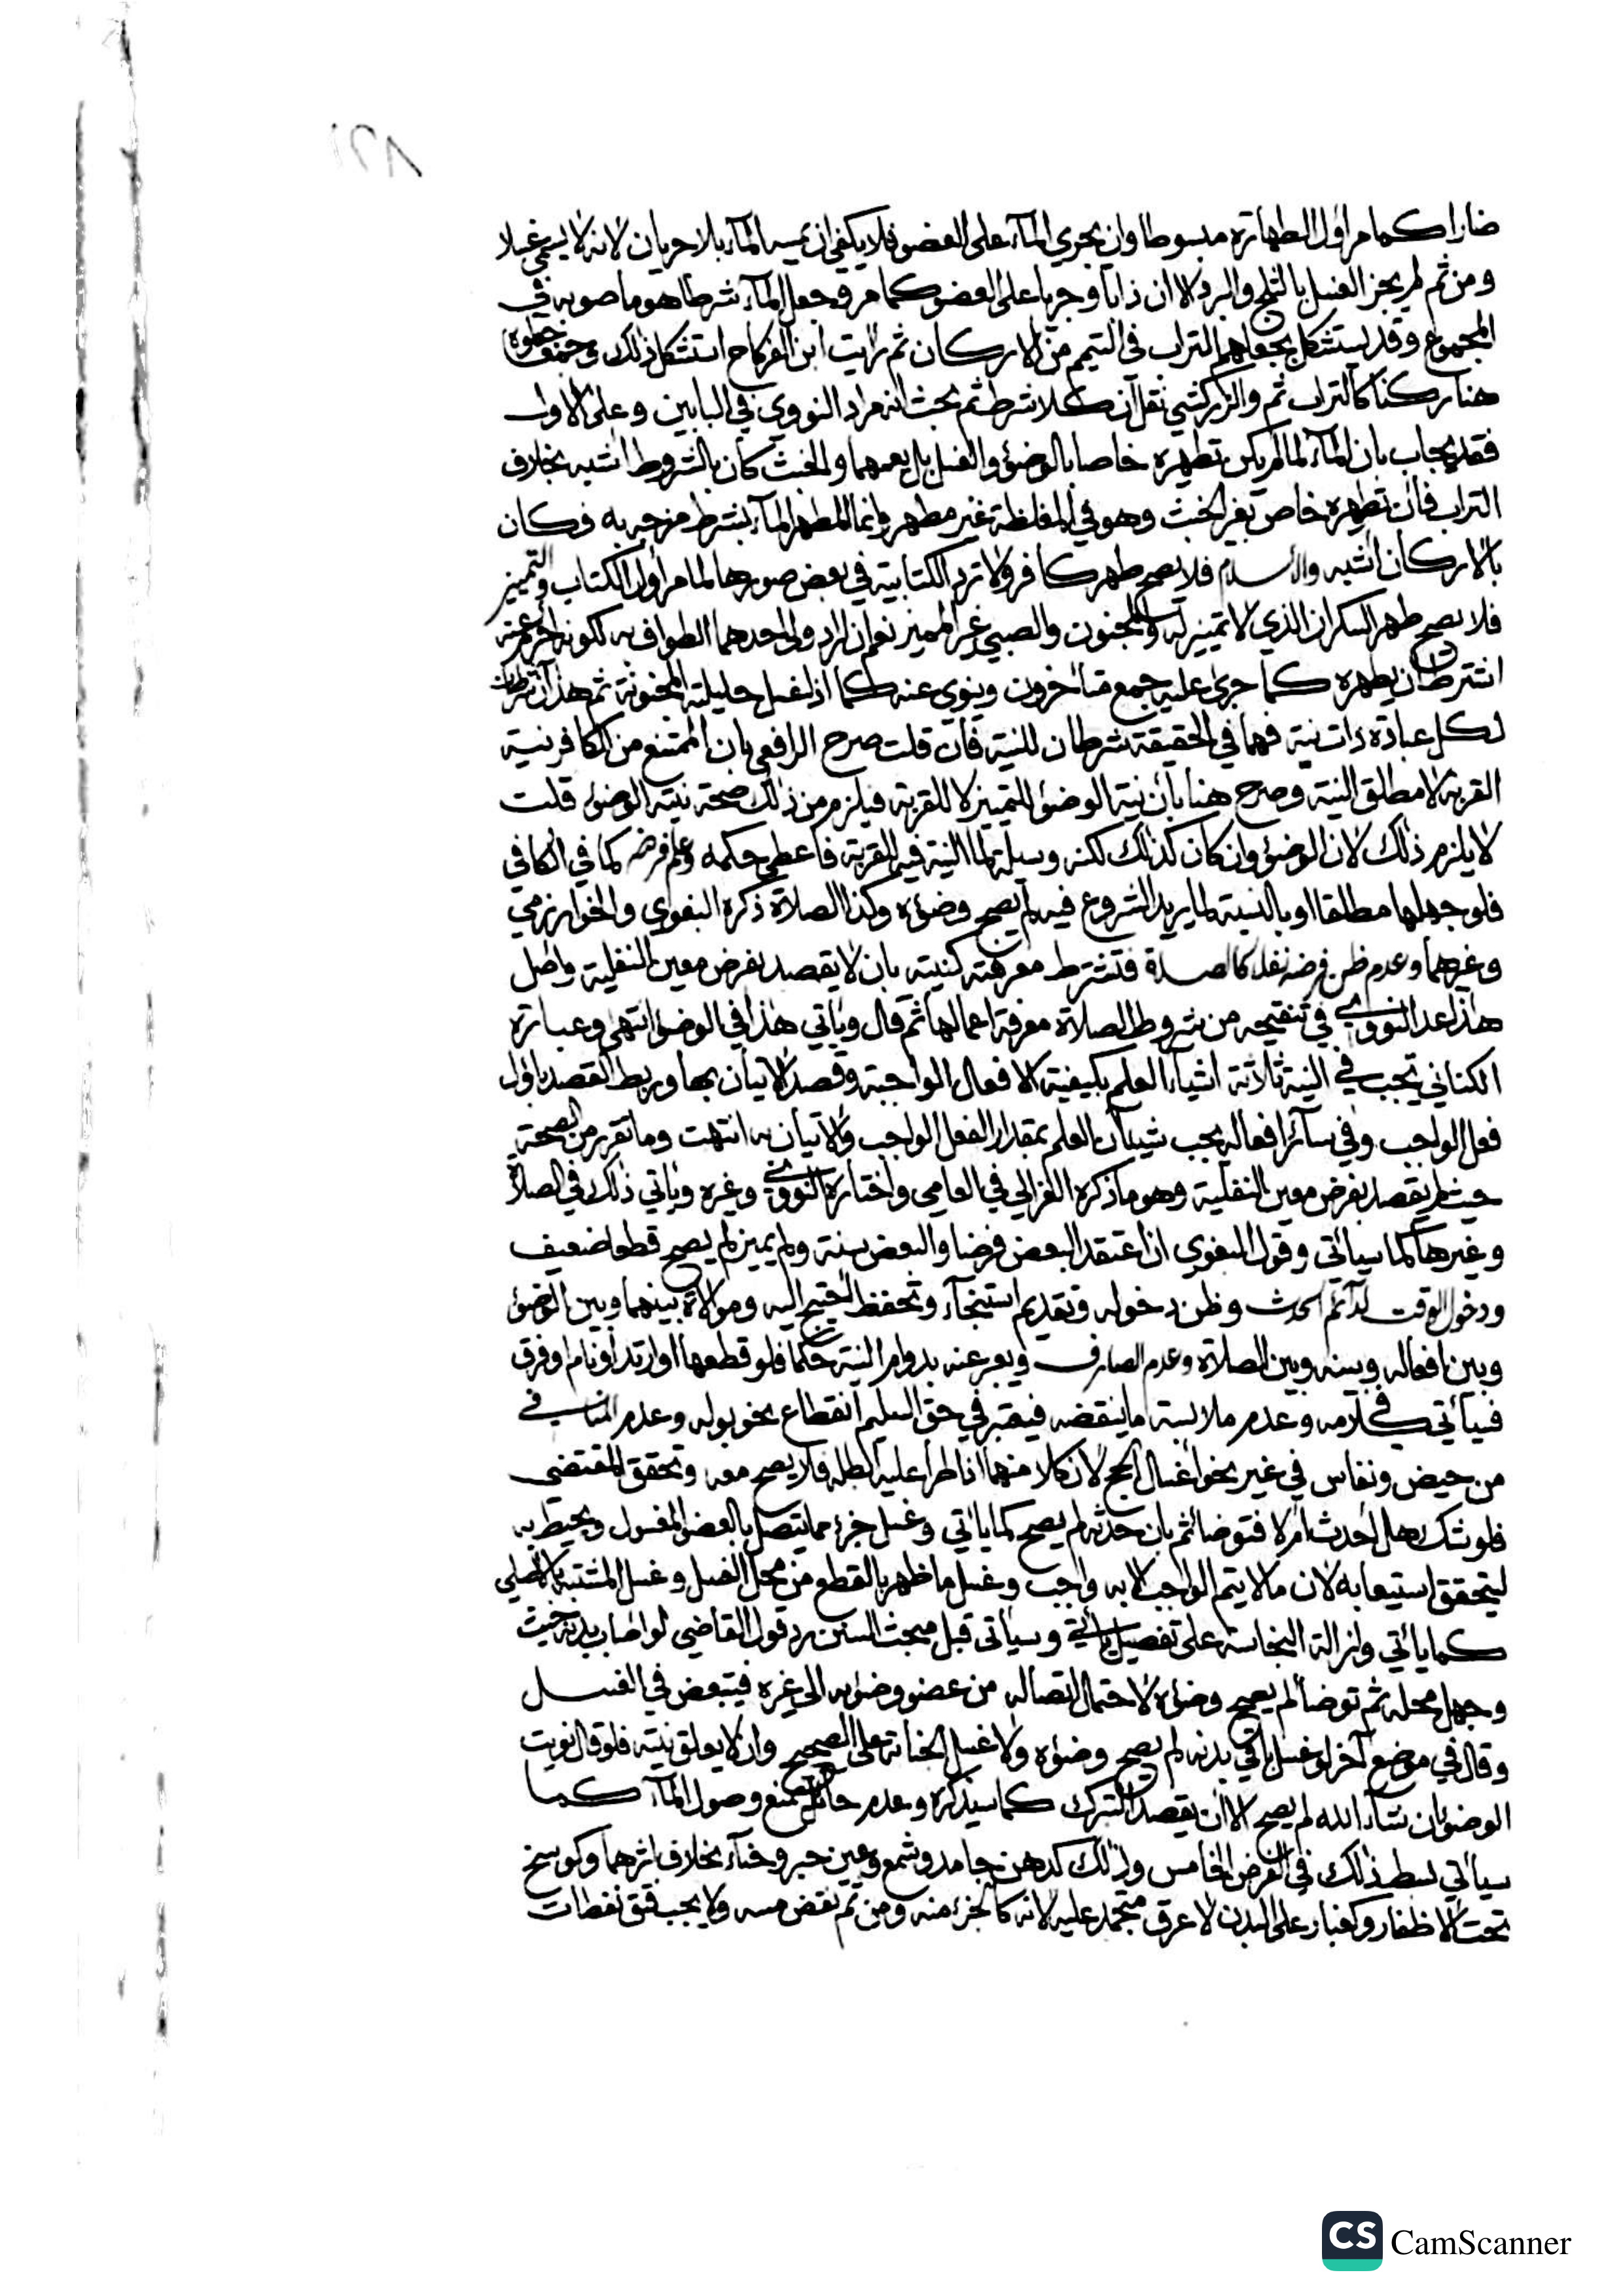 ضارا كما مر اول الطهارة مبسوطا وان يجري المآء على العضو فلا يكفي ان يمسه المآء بلا جريان لانه لا يسمى غسلا
ومن ثم لم يجز الغسل بالثلج والبرد الا ان ذابا وجريا على العضو كما مر وجعل المآء شرطا هو ما صوبه في
المجموع وقد يستشكل بجعلهم التراب في التيمم من الاركان ثم رايت ابن الفركاح استشكل ذلك
هنا ركنا كالتراب ثم والزركشي نقل ان كلا شرط ثم بحث انه مراد النووي في البابين وعلى الاول
فقد يجاب بان المآء لما لم يكن تطهيره خاصا بالوضوء والغسل بل يعمهما والخبث كان بالشروط اشبه بخلاف
التراب فان تطهيره خاص بغير الخبث وهو في المغلظة غير مطهر وانما المطهر المآء بشرط مزجه به فكان
بالاركان اشبه والاسلام فلا يصح طهر كافر ولا ترد الكتابية في بعض صورها لما مر اول الكتاب والتمييز
فلا يصح طهر السكران الذي لا تمييز له والمجنون والصبي غير المميز نعم ان اراد ولي احدهما الطواف به لكونه احرم عنه
اشترط ان يطهره كما جرى عليه جمع متاخرون وينوي عنه كما اذا غسل حليلته المجنونة ثم هذان شرطان
لكل عبادة ذات نية فهما في الحقيقة شرطان للنية فان قلت صرح الرافعي بان الممتنع من الكافر نية
القربة لا مطلق النية وصرح هنا بان نية الوضوء للتمييز لا للقربة فيلزم من ذلك صحة نية الوضوء قلت
لا يلزم ذلك لان الوضوء وان كان كذلك لكنه وسيلة لما النية فيه للقربة فاعطي حكمه وعلم فرضه كما في الكافي
فلو جهلها مطلقا او بالنسبة لما يريد الشروع فيه لم يصح وضوءه وكذا الصلاة ذكره البغوي والخوارزمي
وغيرهما وعدم ظن فرضه نفلا كالصلاة فتشترط معرفته كنيته بان لا يقصد بفرض معين النفلية واصل
هذا عد النووي في تنقيحه من شروط الصلاة معرفة اعمالها ثم قال وياتي هذا في الوضوء انتهى وعبارة
الكناني تجب في النية ثلاثة اشيآء العلم بكيفية الافعال الواجبة وقصد الاتيان بها وربط القصد باول
فعل الواجب وفي سآئر افعاله يجب شيئان العلم بمقدار الفعل الواجب والاتيان به انتهت وما تقرر من الصحة
حيث لم يقصد بفرض معين النفلية وهو ما ذكره الغزالي في العامي واختاره النووي وغيره وياتي ذلك في الصلاة
وغيرها كما سياتي وقول البغوي ان اعتقد البعض فرضا والبعض سنة ولم يميز لم يصح قطعا ضعيف
ودخول الوقت لدآئم الحدث وظن دخوله وتقديم استنجآء وتحفظ احتيج اليه وموالاة بينهما وبين الوضوء
وبين افعاله وبينه وبين الصلاة وعدم الصارف ويعبر عنه بدوام النية حكما فلو قطعها او ارتد او نام او فرق
فسياتي في كلامه وعدم ملابسة ما ينقضه فيعتبر في حق السليم انقطاع نحو بوله وعدم المنافي
من حيض ونفاس في غير نحو اغسال الحج لان كلا منهما اذا طرأ عليه ابطله فلا يصح معه وتحقق المقتضي
فلو شك هل احدث ام لا فتوضا ثم بان حدثه لم يصح كما ياتي وغسل جزء مما يتصل بالعضو المغسول ويحيط به
ليتحقق استيعابه لان ما لا يتم الواجب الا به واجب وغسل ما ظهر بالقطع من محل الغسل وغسل المشتبه بالاصلي
كما ياتي وازالة النجاسة على تفصيل ياتي وسياتي قبل مبحث السنن رد قول القاضي لو اصاب بدنه خبث
وجهل محله ثم توضا لم يصح وضوءه لاحتمال اتصاله من عضو وضوئه الى غيره فيتبعض في الغسل
وقال في موضع آخر لو غسل باقي بدنه لم يصح وضوءه ولا غسل الجنابة على الصحيح وان لا يعلق نيته فلو قال نويت
الوضوء ان شآء الله لم يصح الا ان يقصد التبرك كما سيذكره وعدم حائل يمنع وصول المآء كما
سياتي بسط ذلك في الفرض الخامس وذلك كدهن جامد وشمع وعين حبر وحنآء بخلاف اثرهما وكوسخ
تحت الاظفار وكغبار على البدن لا عرق متجمد عليه لانه كالجزء منه ومن ثم نقض مسه ولا يجب فتق نفطات
CS CamScanner